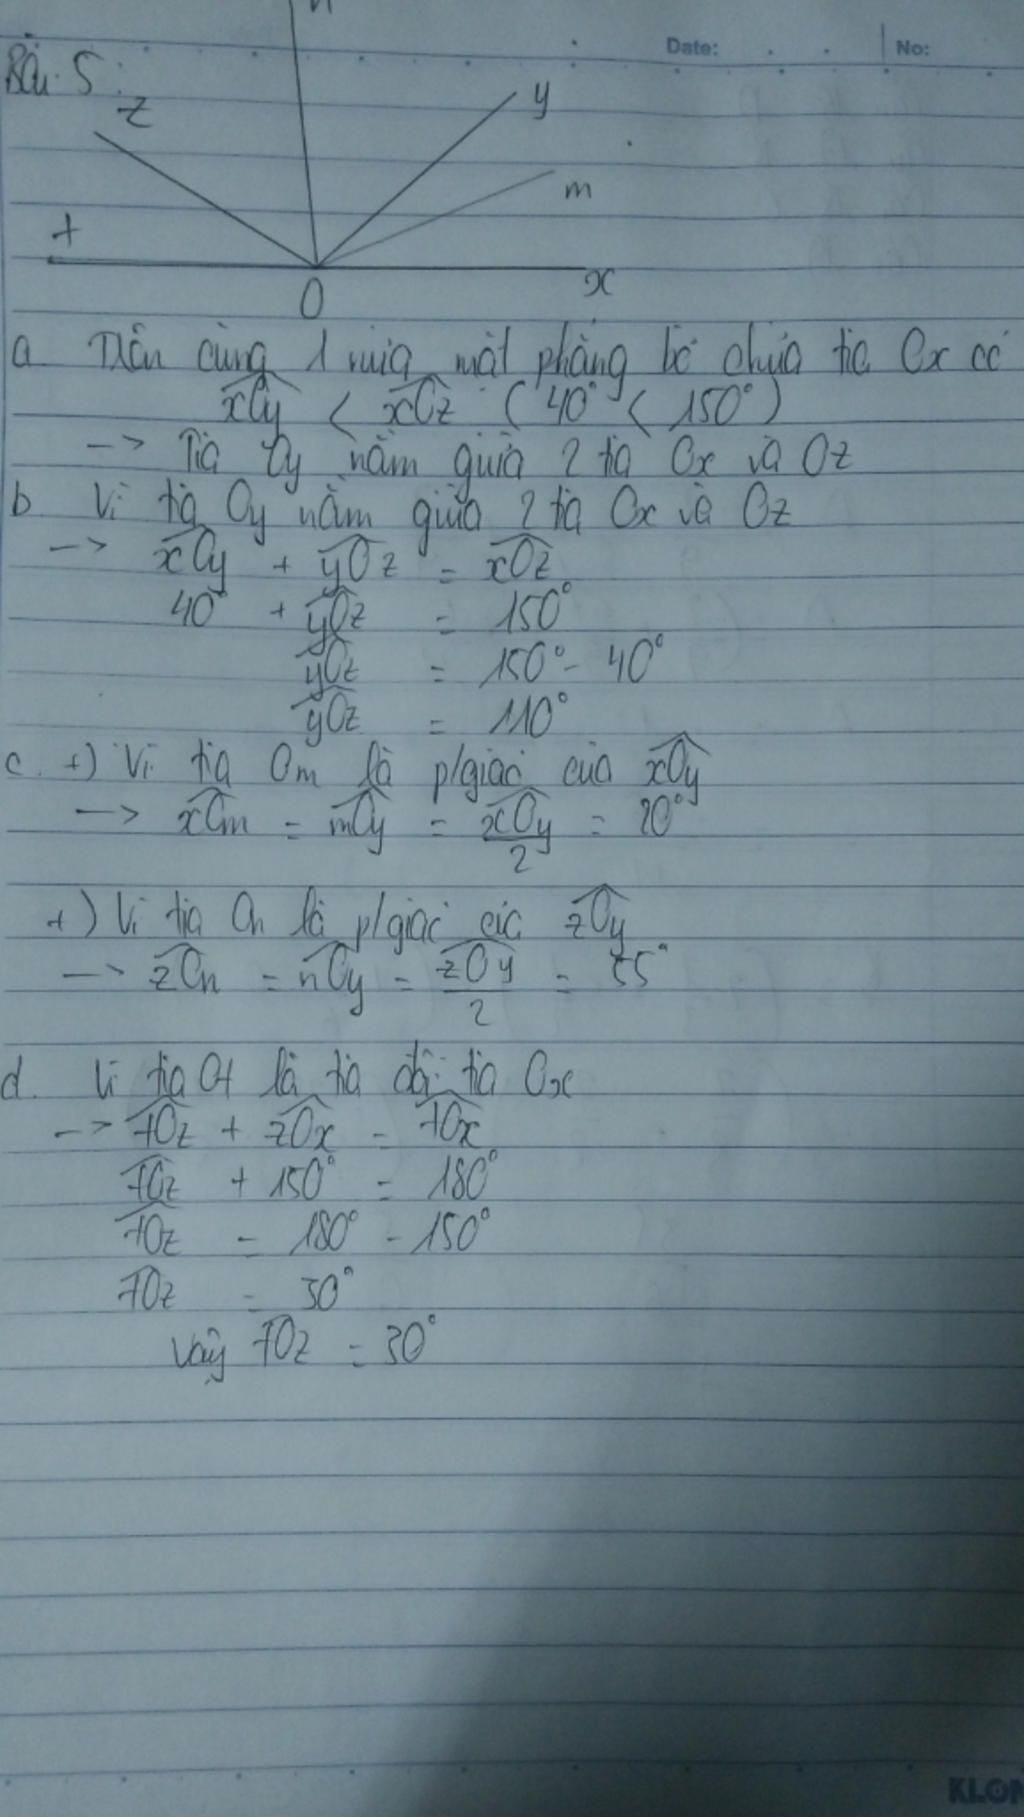 n
Date: No:
Bài 5:
z
y
m
t
O
x
a Trên cùng 1 nửa mặt phẳng bờ chứa tia Ox có
xOy < xOz (40° < 150°)
-> Tia Oy nằm giữa 2 tia Ox và Oz
b Vì tia Oy nằm giữa 2 tia Ox và Oz
-> xOy + yOz = xOz
40° + yOz = 150°
yOz = 150° - 40°
yOz = 110°
c. +) Vì tia Om là p/giác của xOy
-> xOm = mOy = xOy/2 = 20°
+) Vì tia On là p/giác của zOy
-> zOn = nOy = zOy/2 = 55°
d. Vì tia Ot là tia đối tia Ox
-> tOz + zOx = tOx
tOz + 150° = 180°
tOz = 180° - 150°
tOz = 30°
Vậy tOz = 30°